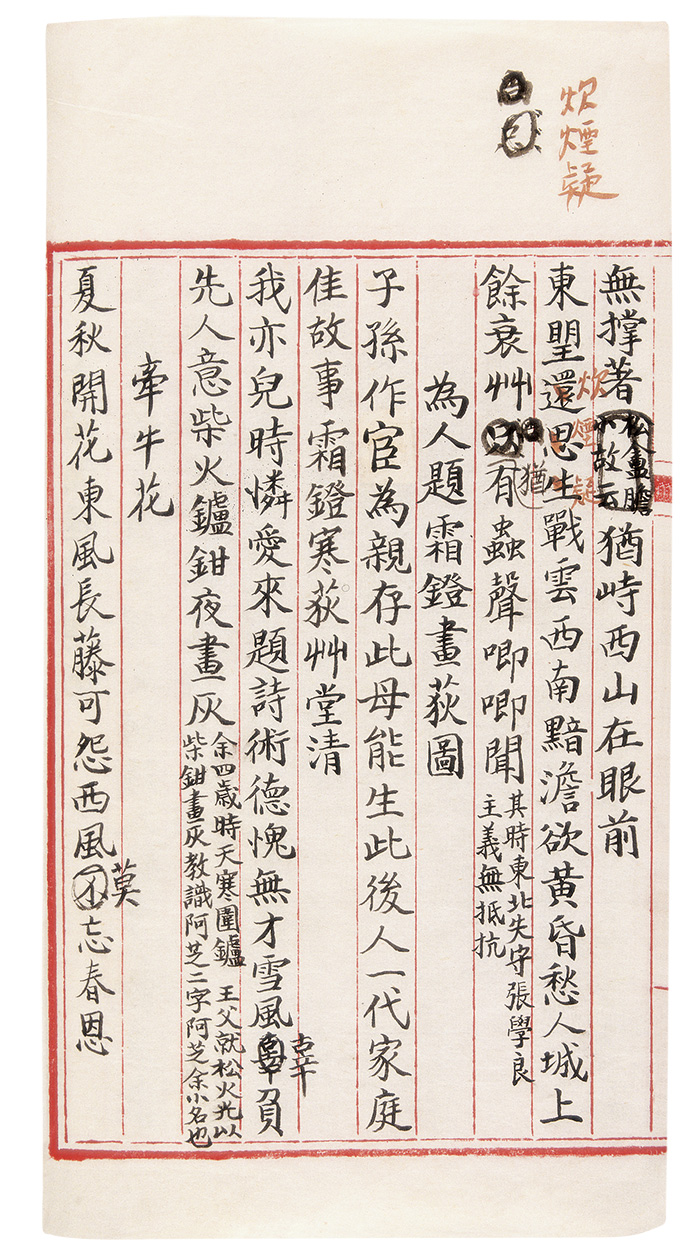 炊煙疑
無撐著猶峙西山在眼前
炊煙疑
東朢還思生戰雲西南黯澹欲黃昏愁人城上
餘衰艸有蟲聲唧唧聞
猶
其時東北失守張學良
主義無抵抗
為人題霜鐙畫荻圖
子孫作官為親存此母能生此後人一代家庭
佳故事霜鐙寒荻艸堂清
我亦兒時憐愛來題詩術德愧無才雪風辜負
先人意柴火鑪鉗夜畫灰
余四歲時天寒圍鑪 王父就松火光以
柴鉗畫灰教識阿芝二字阿芝余小名也
牽牛花
夏秋開花東風長藤可怨西風不忘春恩
莫